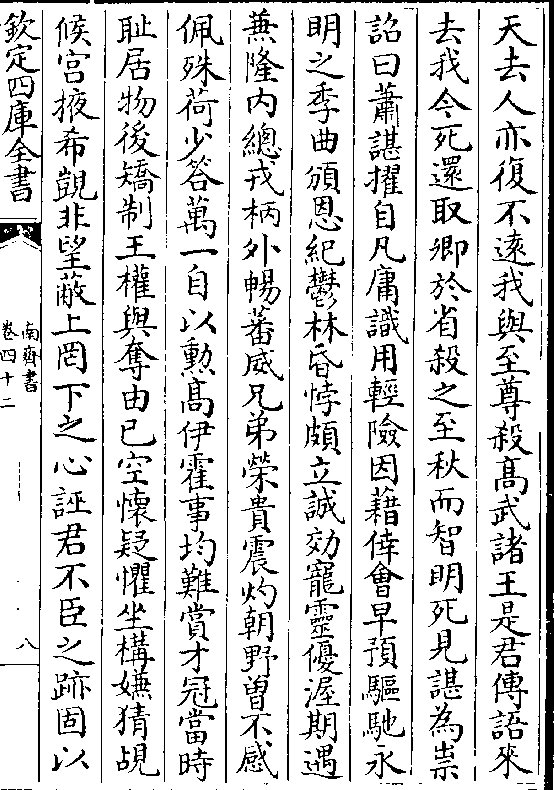 天去人亦復不逺我與至尊殺髙武諸王是君傳語來
去我今死還取卿於省殺之至秋而智明死見諶為祟
詔曰蕭諶擢自凡庸識用輕險因藉倖會早預驅馳永
明之季曲頒恩紀鬱林昏悖頗立誠効寵靈優渥期遇
兼隆内總戎柄外暢蕃威兄弟榮貴震灼朝野曽不感
佩殊荷少答萬一自以勲髙伊霍事均難賞才冠當時
耻居物後矯制王權與奪由已空懷疑懼坐構嫌猜覘
候宫掖希覬非望蔽上罔下之心誣君不臣之跡固以
欽定四庫全書
南齊書
卷四十二
八